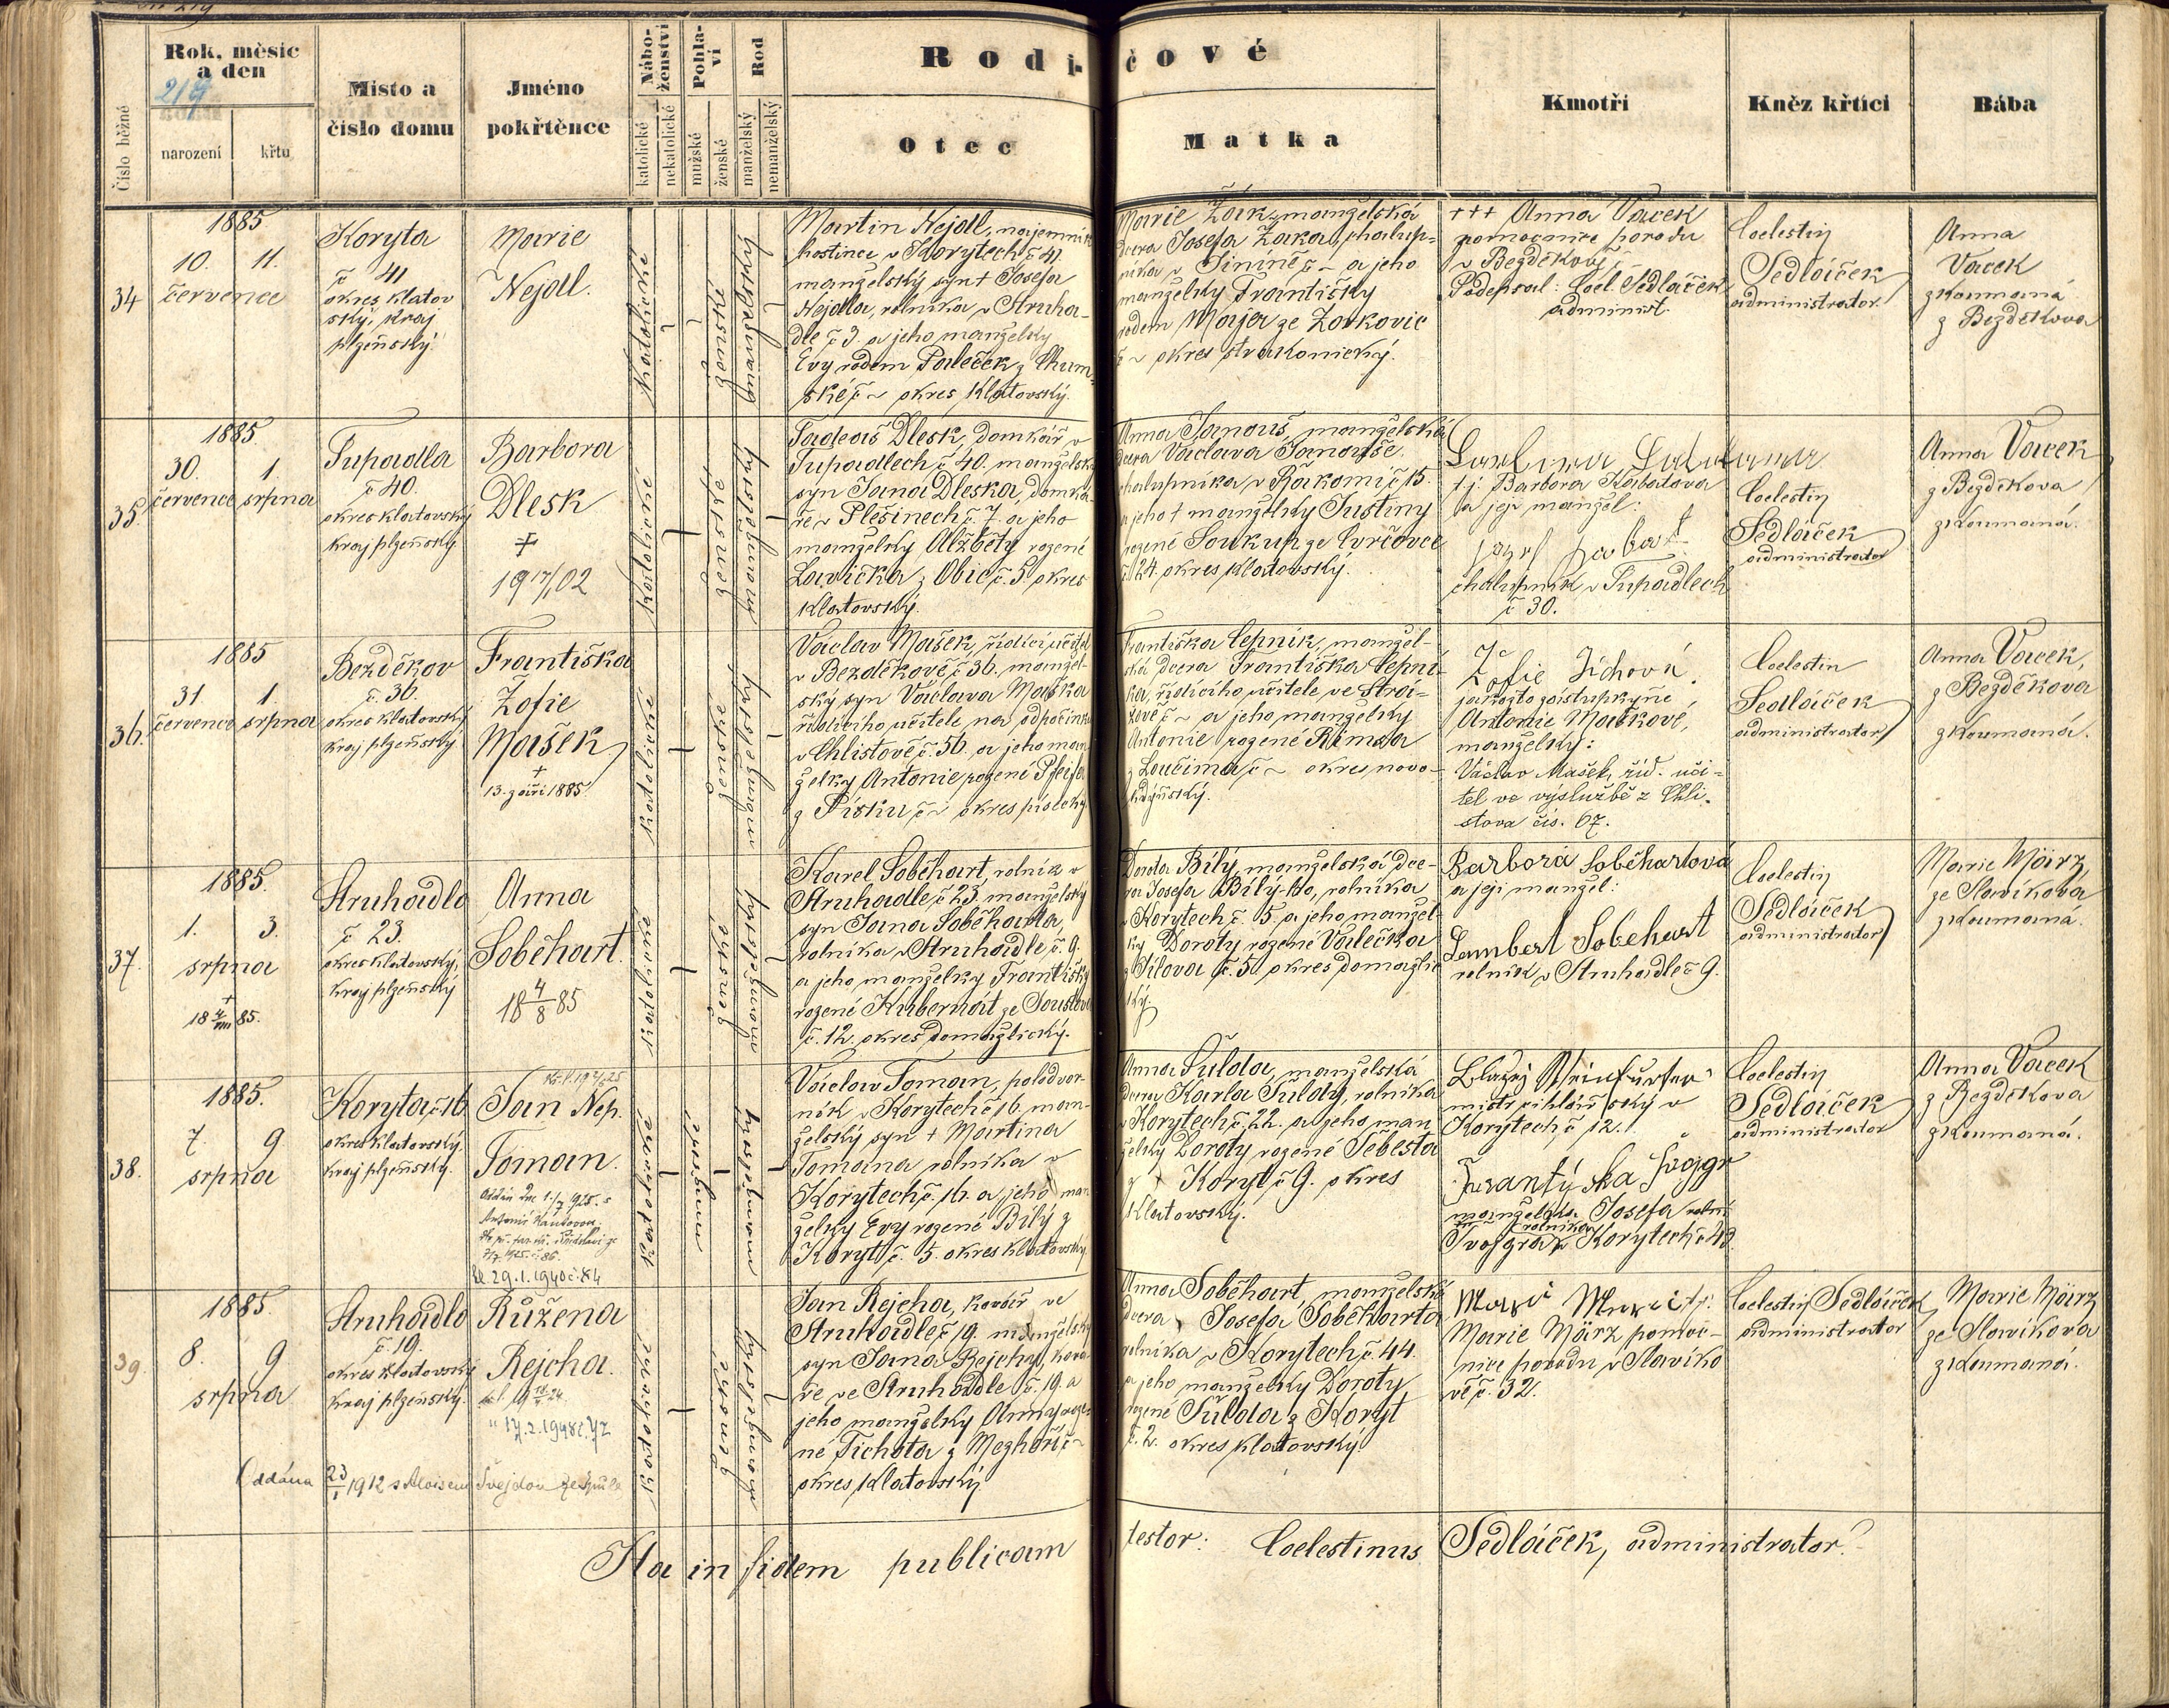 Rok, měsíc
a den
219
narození
křtu
Číslo běžné
Místo a
číslo domu
Jméno
pokřtěnce
Nábo-
ženství
katolické
nekatolické
Pohla-
ví
mužské
ženské
Rod
manželský
nemanželský
Rodi-
čové
Otec
Matka
Kmotři
Kněz křtící
Bába
34
1885
10. 11.
července
Koryta
č 41
okres Klatov
ský, Kraj
plzeňský.
Marie
Nejdl.
Katolické
ženské
manželský
Martin Nejdl, najemník
hostince v Korytech č 41.
manželský syn † Josefa
Nejdla, rolníka v Struha-
dle č 3. a jeho manželky
Evy rodem Paleček z Chum-
ské č ~ okres Klatovský.
Marie Žák, manželská
dcera Josefa Žáka, chalup-
níka v č ~ a jeho
manželky Františky
rodem Majer ze Zorkovic
č ~ okres strakonický.
+++ Anna Vacek
pomocnice porodu
v Bezděkově č ~
Podepsal: Coel. Sedláček
administ.
Coelestin
Sedláček
administrator.
Anna
Vacek
zkoumaná
z Bezděkova
35.
1885
30. 1.
července srpna
Tupadla
č 40.
okres klatovský
kraj plzeňský.
Barbora
Dlesk
†
19 17/1 02
Katolické
ženské
manželský
Tadeáš Dlesk, domkář v
Tupadlech č 40. manželský
syn Jana Dleska, domká-
ře v Plešinech č. 7. a jeho
manželky Alžběty rozené
Lavička z Obic č. 5 okres
Klatovský.
Anna Janouš, manželská
dcera Václava Janouše,
chalupníka v Rákomi č 15.
a jeho † manželky Justiny
rozené Soukup ze Cvrčovce
č 24. okres Klatovský.
t.j. Barbora Kabátova
a její manžel:
chalupník v Tupadlech
č 30.
Coelestin
Sedláček
administrator
Anna Vacek
z Bezděkova
zkoumaná.
36.
1885
31. 1.
července srpna
Bezděkov
č. 36.
okres klatovský
kraj plzeňský
Františka
Žofie
Mašek
†
13. září 1885.
Katolické
ženské
manželský
Václav Mašek, řídící učitel
v Bezděkově č 36. manžel-
ský syn Václava Maška
řídícího učitele na odpočinku
v Chlistově č. 56. a jeho man-
želky Antonie rozené Pfeifer
z Písku č ~ okres písecký
Františka Cepník, manžel-
ská dcera Františka Cepní-
ka, řídícího učitele ve Strá-
žově č ~ a jeho manželky
Antonie rozené Rimsa
z Loučima č ~ okres novo-
kdyňský.
Žofie Jíchová,
jakožto zástupkyně
Antonie Maškové,
manželky:
Václav Mašek, říd. uči-
tel ve výslužbě z Chli-
stova čís. 67.
Coelestin
Sedláček
administrator
Anna Vacek,
z Bezděkova
zkoumaná.
37.
1885.
1. 3.
srpna
†
18 4/VIII 85.
Struhadlo
č 23.
okres klatovský,
kraj plzeňský
Anna
Soběhart.
18 4/8 85
Katolické
ženské
manželský
Karel Soběhart, rolník v
Struhadle č 23. manželský
syn Jana Soběharta,
rolníka v Struhadle č. 9.
a jeho manželky Františky
rozené Kubernát ze
č. 12. okres domažlický.
Dorota Bílý, manželská dce-
ra Josefa Bílý-ho, rolníka
v Korytech č. 5 a jeho manžel-
ky Doroty rozené Valečka
z Úlova č. 5. okres domažlic-
ký.
Barbora Soběhartová
a její manžel:
Lambert Soběhart
rolník v Struhadle č 9.
Coelestin
Sedláček
administrator
Marie März,
ze Slavíkova
zkoumaná.
38.
1885.
7. 9
srpna
Koryta č 16
okres klatovský
kraj plzeňský.
Jan Nep.
Toman.
29.1.1940 č. 84
Katolické
mužské
manželský
Václav Toman, polodvor-
ník v Korytech č 16. man-
želský syn † Martina
Tomana rolníka v
Korytech č. 16. a jeho man-
želky Evy rozené Bílý z
Koryt č. 5. okres klatovský
Anna Šulda, manželská
dcera Karla Šuldy, rolníka
v Korytech č. 22. a jeho man-
želky Doroty rozené Šebesta
z Koryt č 9. okres
Klatovský.
Blažej Steinfurter
mistr v
Korytech č 12.
manželka Josefa
rolníka
v Korytech č 43
Coelestin
Sedláček
administrator
Anna Vacek
z Bezděkova
zkoumaná.
39.
1885.
8. 9
srpna
Struhadlo
č. 19.
okres klatovský
kraj plzeňský.
Růžena
Rejcha.
17.2.1948 č. 72
Oddána 23/1 1912 s Aloisem Švejdou
Katolické
ženské
manželský
Jan Rejcha, kovář ve
Struhadle č 19. manželský
syn Jana Rejchy, ková-
ře ve Struhadle č. 19. a
jeho manželky Anny roze-
né Tichota z Mezhoří č ~
okres Klatovský
Anna Soběhart, manželská
dcera Josefa Soběharta
rolníka v Korytech č. 44.
a jeho manželky Doroty
rozené Šulda z Koryt
č. 2. okres klatovský.
Marie März pomoc-
nice porodu v Slavíko
vě č. 32.
Coelestin Sedláček
administrator
Marie März
ze Slavíkova
zkoumaná.
Ita in fidem publicam testor: Coelestinus Sedláček, administrator.